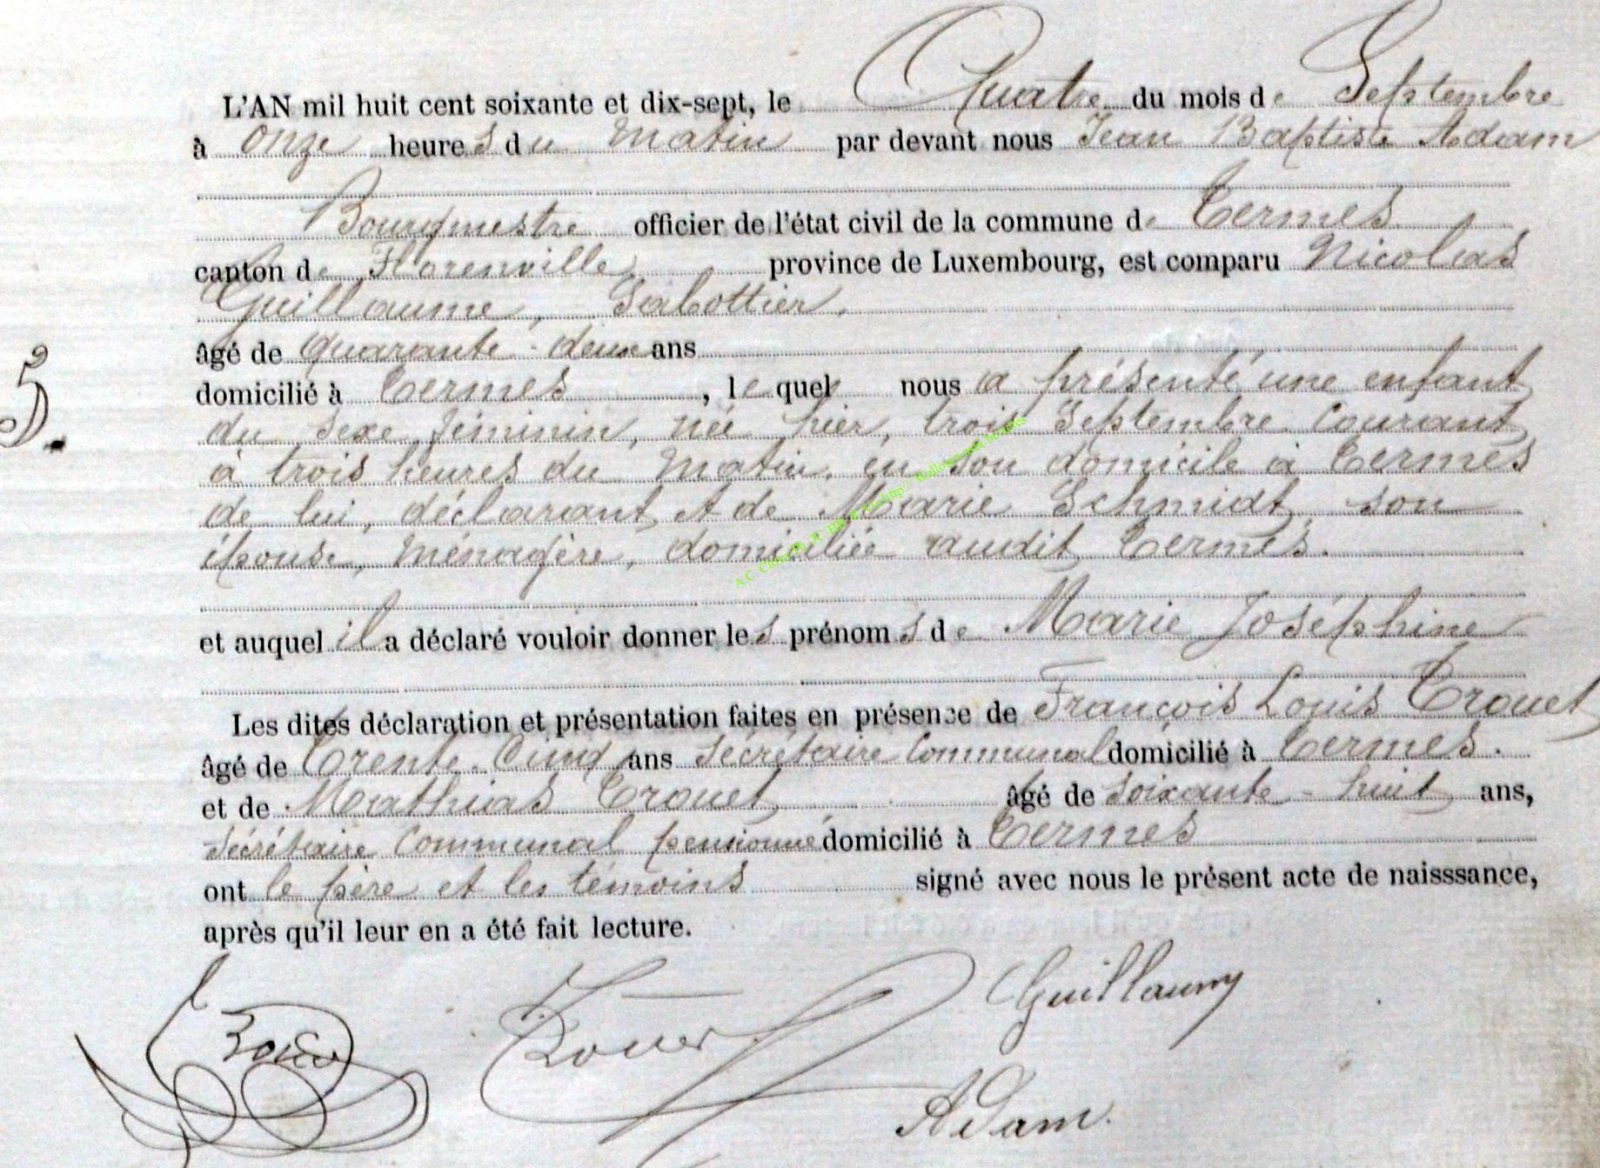 L'AN mil huit cent soixante et dix-sept, le Quatre du mois de Septembre
à onze heures du matin par devant nous Jean Baptiste Adam
Bourgmestre officier de l'état civil de la commune de Termes
canton de Florenville province de Luxembourg, est comparu Nicolas
Guillaume, Sabottier,
âgé de quarante-deux ans
domicilié à Termes, lequel nous a présenté une enfant
5.
du sexe féminin, née hier, trois Septembre courant
à trois heures du matin, en son domicile à Termes
de lui, déclarant et de Marie Schmidt, son
épouse, Ménagère, domiciliée audit Termes.
et auquel il a déclaré vouloir donner les prénoms de Marie Joséphine
Les dites déclaration et présentation faites en présence de François Louis Trouet
âgé de Trente-Cinq ans Secrétaire Communal domicilié à Termes.
et de Mathias Trouet âgé de soixante-huit ans,
Secrétaire Communal pensionné domicilié à Termes
ont le père et les témoins signé avec nous le présent acte de naisssance,
après qu'il leur en a été fait lecture.
Guillaume
Adam.